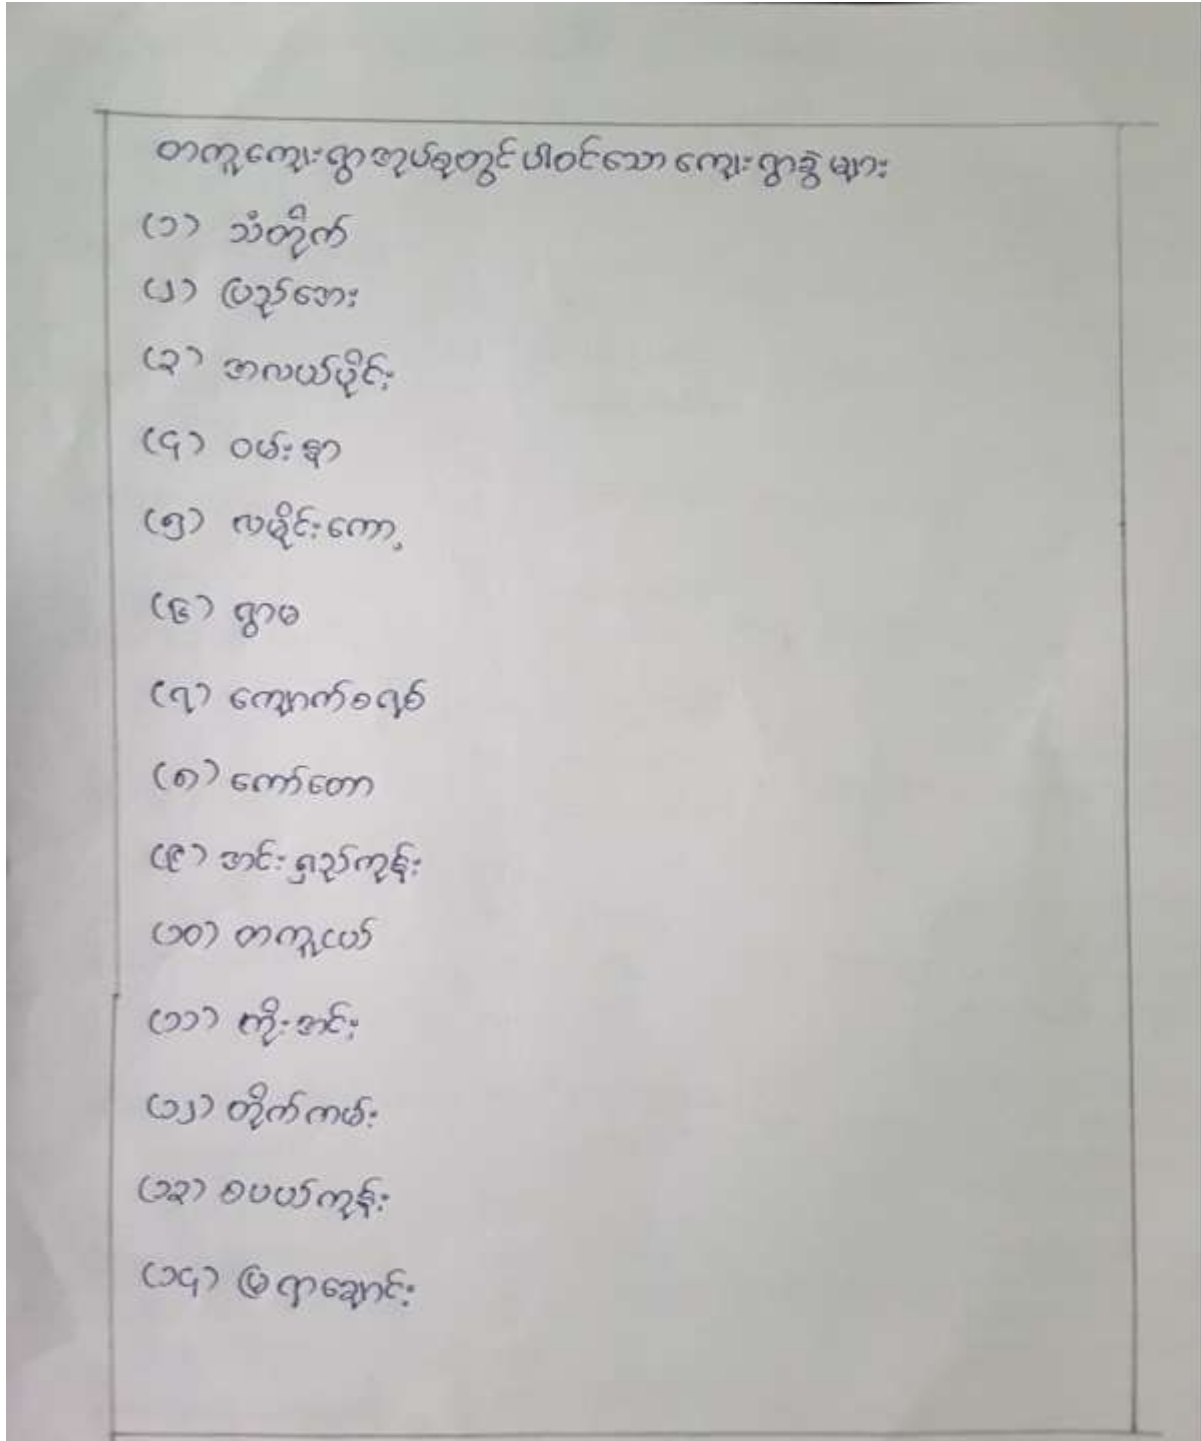 တကူကျေးရွာအုပ်စုတွင်ပါဝင်သော ကျေးရွာခွဲများ
(၁) သံတိုက်
(၂) ပြည်အေး
(၃) အလယ်ပိုင်း
(၄) ဝမ်းနာ
(၅) လမိုင်းကော့
(၆) ရွာမ
(၇) ကျောက်စရစ်
(၈) ကော်တော
(၉) အင်းရှည်ကုန်း
(၁၀) တကူငယ်
(၁၁) ကိုးအင်း
(၁၂) တိုက်ကမ်း
(၁၃) စပယ်ကုန်း
(၁၄) မြရာချောင်း